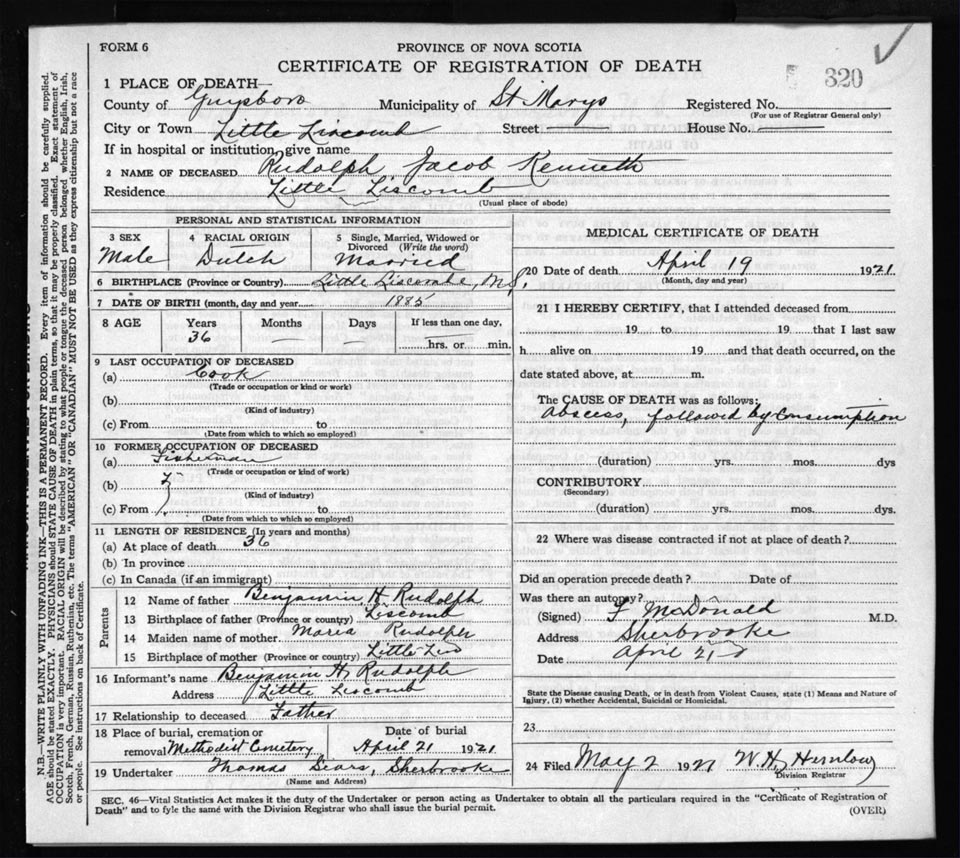 FORM 6
PROVINCE OF NOVA SCOTIA
CERTIFICATE OF REGISTRATION OF DEATH
320
1 PLACE OF DEATH—
County of Guysboro Municipality of St Marys Registered No.
(For use of Registrar General only)
City or Town Little Liscomb Street House No.
If in hospital or institution, give name
2 NAME OF DECEASED Rudolph Jacob Kenneth
Residence Little Liscomb
(Usual place of abode)
PERSONAL AND STATISTICAL INFORMATION
3 SEX 4 RACIAL ORIGIN 5 Single, Married, Widowed or
Divorced (Write the word)
Male Dutch Married
6 BIRTHPLACE (Province or Country) Little Liscombe, N.S.
7 DATE OF BIRTH (month, day and year) 1885
8 AGE Years Months Days If less than one day,
36 — — hrs. or min.
9 LAST OCCUPATION OF DECEASED
(a) Cook
(Trade or occupation or kind or work)
(b)
(Kind of industry)
(c) From to
(Date from which to which so employed)
10 FORMER OCCUPATION OF DECEASED
(a) Fisherman
(Trade or occupation or kind of work)
(b)
(Kind of industry)
(c) From to
(Date from which to which so employed)
11 LENGTH OF RESIDENCE (In years and months)
(a) At place of death 36
(b) In province
(c) In Canada (if an immigrant)
Parents
12 Name of father Benjamin H Rudolph
13 Birthplace of father (Province or country) Liscomb
14 Maiden name of mother Maria Rudolph
15 Birthplace of mother (Province or country) Little Lis
16 Informant's name Benjamin H. Rudolph
Address Little Liscomb
17 Relationship to deceased Father
18 Place of burial, cremation or Date of burial
removal Methodist Cemetery April 21 1921
19 Undertaker Thomas Sears, Sherbrooke
(Name and Address)
MEDICAL CERTIFICATE OF DEATH
20 Date of death April 19 1921
(Month, day and year)
21 I HEREBY CERTIFY, that I attended deceased from
19 to 19 that I last saw
h alive on 19 and that death occurred, on the
date stated above, at m.
The CAUSE OF DEATH was as follows:
Abscess, followed by Consumption
(duration) yrs. mos. dys
CONTRIBUTORY
(Secondary)
(duration) yrs. mos. dys.
22 Where was disease contracted if not at place of death?
Did an operation precede death? Date of
Was there an autopsy?
(Signed) McDonald M.D.
Address Sherbrooke
Date April 21
State the Disease causing Death, or in death from Violent Causes, state (1) Means and Nature of
Injury, (2) whether Accidental, Suicidal or Homicidal.
23
24 Filed May 2 1921 W.H.
Division Registrar
SEC. 46—Vital Statistics Act makes it the duty of the Undertaker or person acting as Undertaker to obtain all the particulars required in the "Certificate of Registration of
Death" and to fyle the same with the Division Registrar who shall issue the burial permit.
(OVER)
N.B.—WRITE PLAINLY WITH UNFADING INK—THIS IS A PERMANENT RECORD. Every item of information should be carefully supplied.
AGE should be stated EXACTLY. PHYSICIANS should STATE CAUSE OF DEATH in plain terms, so that it may be properly classified. Exact statement of
OCCUPATION is very important. RACIAL ORIGIN will be described by stating to what people or tongue the deceased person belonged whether English, Irish,
Scotch, French, German, Russian, Ruthenian, etc. The terms "AMERICAN" OR "CANADIAN" MUST NOT BE USED as they express citizenship but not a race
or people. See instructions on back of Certificate.